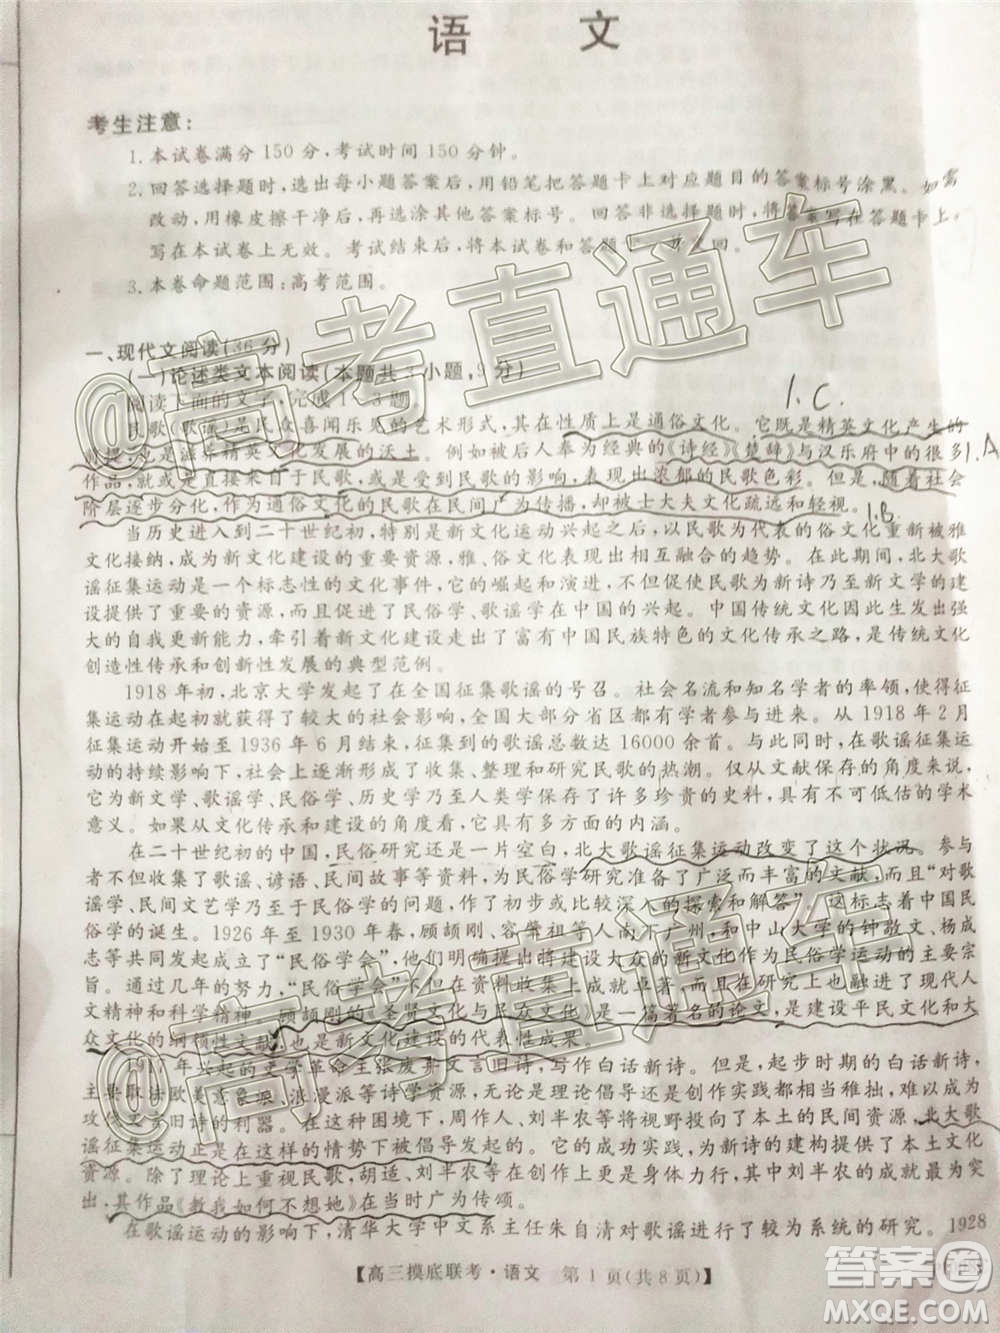 语 文
考生注意:
1.本试卷满分150分,考试时间150分钟。
2.回答选择题时,选出每小题答案后,用铅笔把答题卡上对应题目的答案标号涂黑。如需
改动,用橡皮擦干净后,再选涂其他答案标号。回答非选择题时,将答案写在答题卡上,
写在本试卷上无效。考试结束后,将本试卷和答题卡一并交回。
3.本卷命题范围:高考范围。
一、现代文阅读(36分)
(一)论述类文本阅读(本题共3小题,9分)
阅读下面的文字,完成1~3题。
1.C.
民歌(歌谣)是民众喜闻乐见的艺术形式,其在性质上是通俗文化。它既是精英文化产生的
前提,也是滋养精英文化发展的沃土。例如被后人奉为经典的《诗经》《楚辞》与汉乐府中的很多
1.A
作品,就或是直接来自于民歌,或是受到民歌的影响,表现出浓郁的民歌色彩。但是,随着社会
阶层逐步分化,作为通俗文化的民歌在民间广为传播,却被士大夫文化疏远和轻视。
1.B.
当历史进入到二十世纪初,特别是新文化运动兴起之后,以民歌为代表的俗文化重新被雅
文化接纳,成为新文化建设的重要资源,雅、俗文化表现出相互融合的趋势。在此期间,北大歌
谣征集运动是一个标志性的文化事件,它的崛起和演进,不仅促成民歌为新诗乃至新文学的建
设提供了重要的资源,而且促进了民俗学、歌谣学在中国的兴起。中国传统文化因此生发出强
大的自我更新能力,牵引着新文化建设走出了富有中国民族特色的文化传承之路,是传统文化
创造性传承和创新性发展的典型范例。
1918年初,北京大学发起了在全国征集歌谣的号召。社会名流和知名学者的率领,使得歌谣
征集运动在起初就获得了较大的社会影响,全国大部分省区都有学者参与进来。从1918年2月
征集运动开始至1936年6月结束,征集到的歌谣总数达16000余首。与此同时,在歌谣征集运
动的持续影响下,社会上逐渐形成了收集、整理和研究民歌的热潮。仅从文献保存的角度来说,
它为新文学、歌谣学、民俗学、历史学乃至人类学保存了许多珍贵的史料,具有不可低估的学术
意义。如果从文化传承和建设的角度看,它具有多方面的内涵。
在二十世纪初的中国,民俗研究还是一片空白,北大歌谣征集运动改变了这个状况。参与
者不但收集了歌谣、谚语、民间故事等资料,为民俗学研究准备了广泛而丰富的资料,而且“对歌
谣学、民间文艺学乃至于民俗学的问题,作了初步或比较深入的探索和解答”。这标志着中国民
俗学的诞生。1926年至1930年春,顾颉刚、容肇祖等人南下广州,和中山大学的钟敬文、杨成
志等共同发起成立了“民俗学会”,他们明确提出将建设大众的新文化作为“民俗学会”的宗
旨。通过几年的努力,“民俗学会”在资料收集上成就卓著,而且在研究上达到了引进现代人
文精神和科学精神 顾颉刚的《圣贤文化与民众文化》是一篇著名的论文,是建设平民文化和大
众文化的纲领性文献,也是新文化建设的代表性成果。
1917年兴起的文学革命主张废弃文言旧诗,写作白话新诗。但是,起步时期的白话新诗,
主要取法欧美意象派、浪漫派等诗学资源,无论是理论倡导还是创作实践,都极为稚嫩,难以成为
攻伐文言旧诗的利器。在这种困境下,周作人、刘半农等将视野投向了本土的民间资源,北大歌
谣征集运动正是在这样的情势下被大力提倡和发起的。它的成功实践,为新诗的建构提供了本土文化
资源。除了理论上重视民歌,胡适、刘半农等还在创作上更是身体力行,其中刘半农的成就最为突
出,其作品《教我如何不想她》在当时广为传颂。
在歌谣运动的影响下,清华大学中文系主任朱自清对歌谣进行了较为系统的研究。1928
【高三摸底联考·语文 第1页(共8页)】
@高考直通车
@高考直通车
答案圈
MXQE.COM